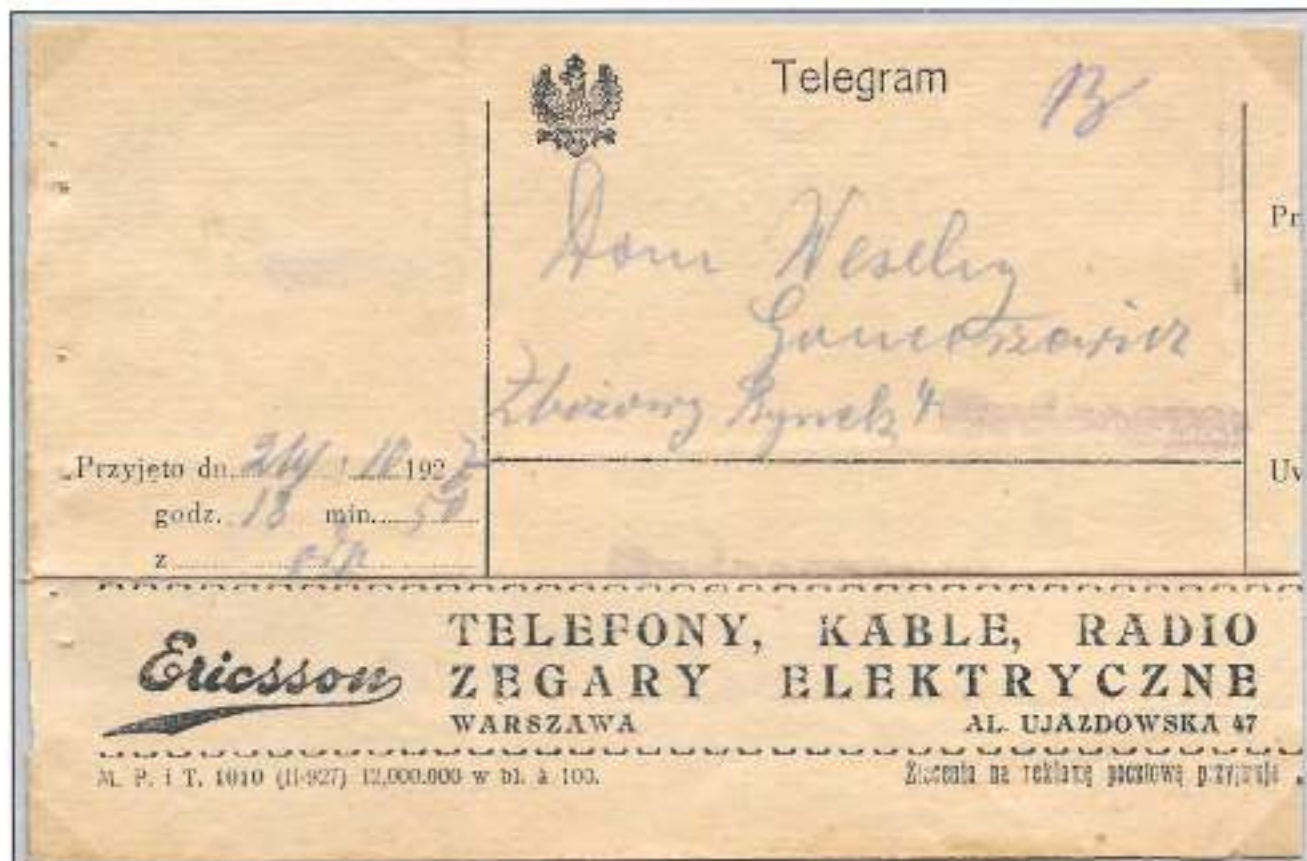 Telegram
Dom Weselny
Goncarzewicz
Zbożowy Rynek 4
Pr
Przyjęto dn. 24/10 1927
godz. 18 min. 50
z
Uv
Ericsson
TELEFONY, KABLE, RADIO
ZEGARY ELEKTRYCZNE
WARSZAWA AL. UJAZDOWSKA 47
M. P. i T. 1010 (II-927) 12,000.000 w bl. à 100.
Zlecenia na reklamę pocztową przyjmuje „